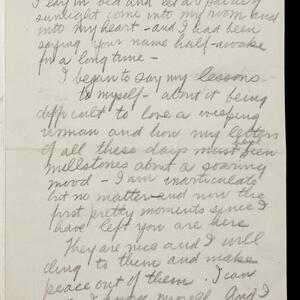 I lay in bed and let a patch of
sunlight come into my room and
into my heart - and I had been
saying your name half-awake
for a long time -
I began to say my lessons
to myself - about it being
difficult to love a weeping
woman and how my letters
of all these days must have been
millstones about a soaring
mood - I am inarticulate
but no matter - and now the
first pretty moments since I
have left you are here
They are nice and I will
cling to them and make
peace out of them. I can
myself And I